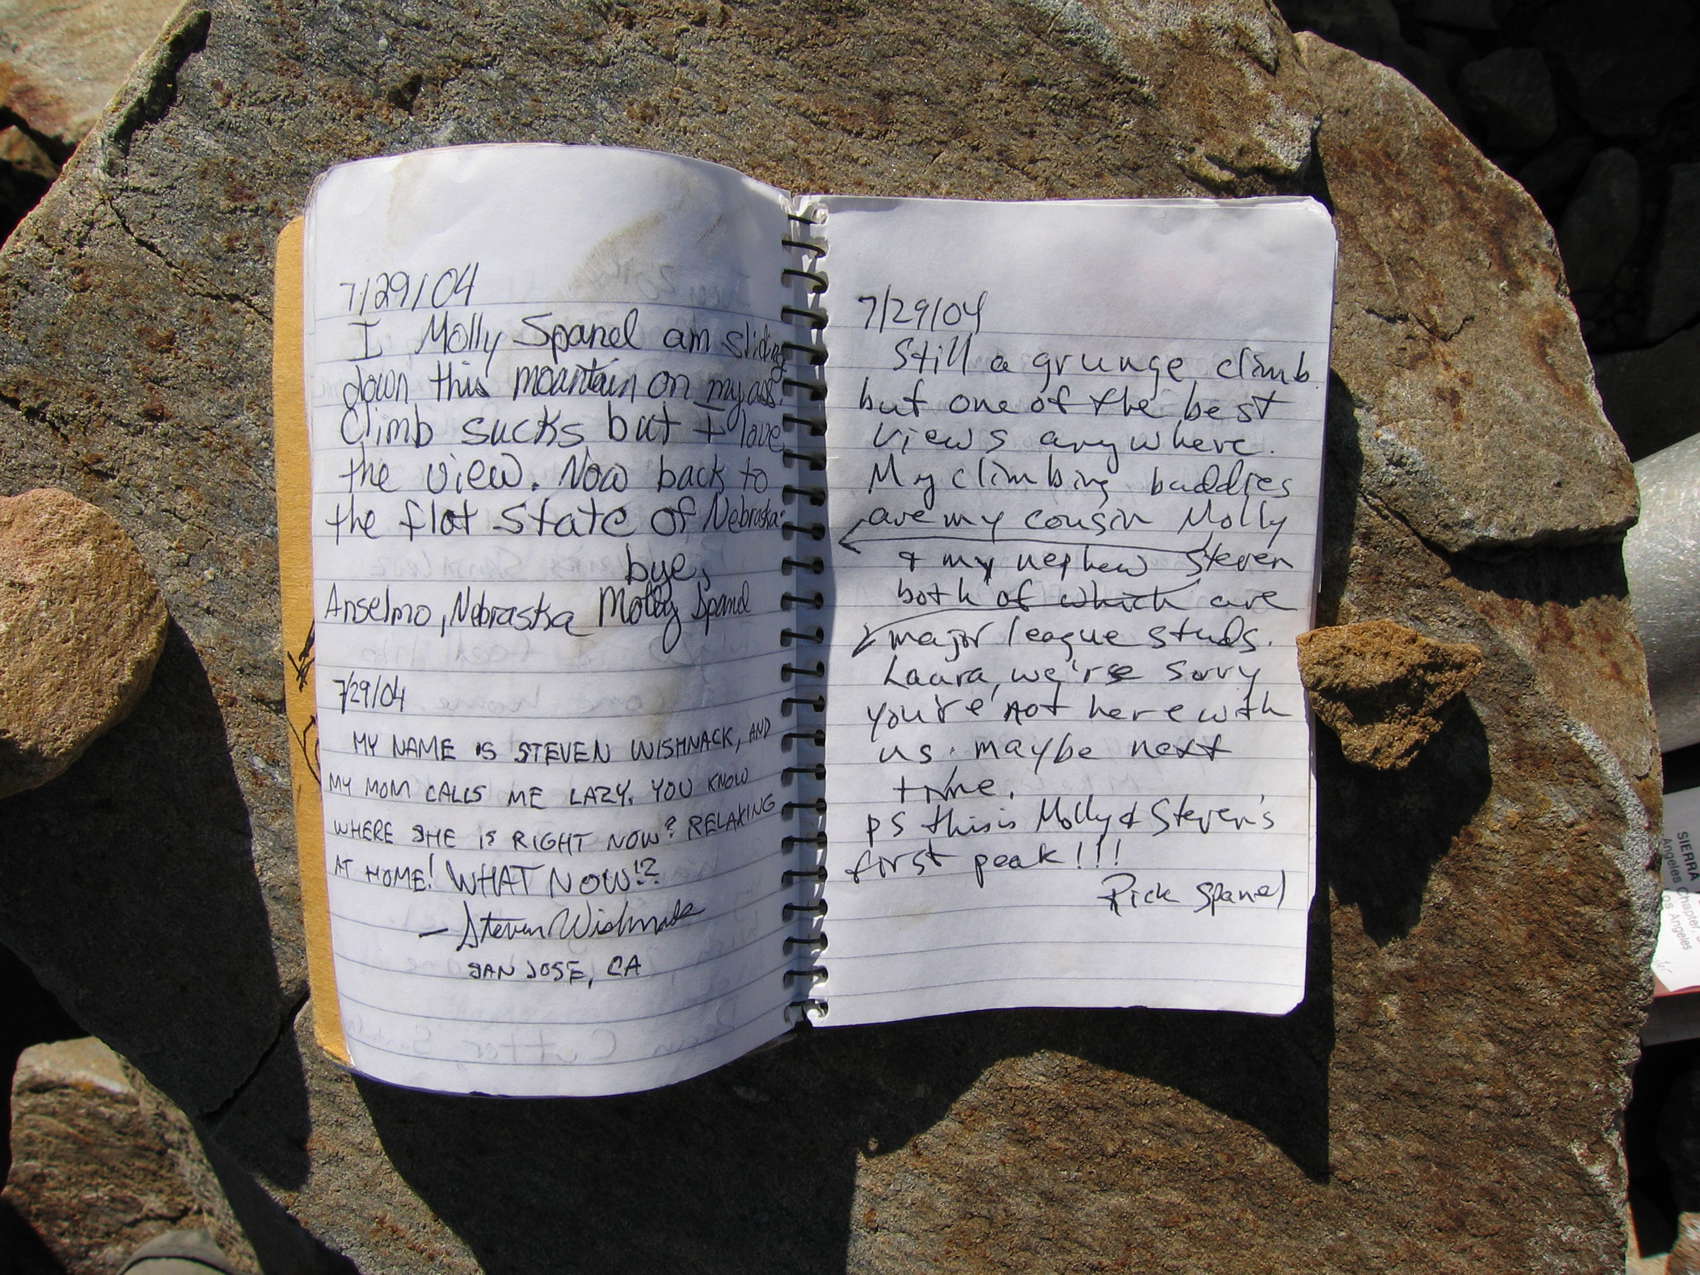 7/29/04
I Molly Spanel am sliding
down this mountain on my ass.
Climb sucks but I love
the view. Now back to
the flat state of Nebraska.
bye,
Anselmo, Nebraska Molly Spanel
7/29/04
MY NAME IS STEVEN WISHNACK, AND
MY MOM CALLS ME LAZY. YOU KNOW
WHERE SHE IS RIGHT NOW? RELAXING
AT HOME! WHAT NOW!?
— Steven Wishnack
SAN JOSE, CA
7/29/04
Still a grunge climb.
but one of the best
views anywhere.
My climbing buddies
are my cousin Molly
& my nephew Steven
both of which are
major league studs.
Laura, we're sorry
you're not here with
us. maybe next
time.
ps this is Molly & Steven's
first peak!!!
Rick Spanel
SIERRA
Angeles Chapter,
Los Angeles